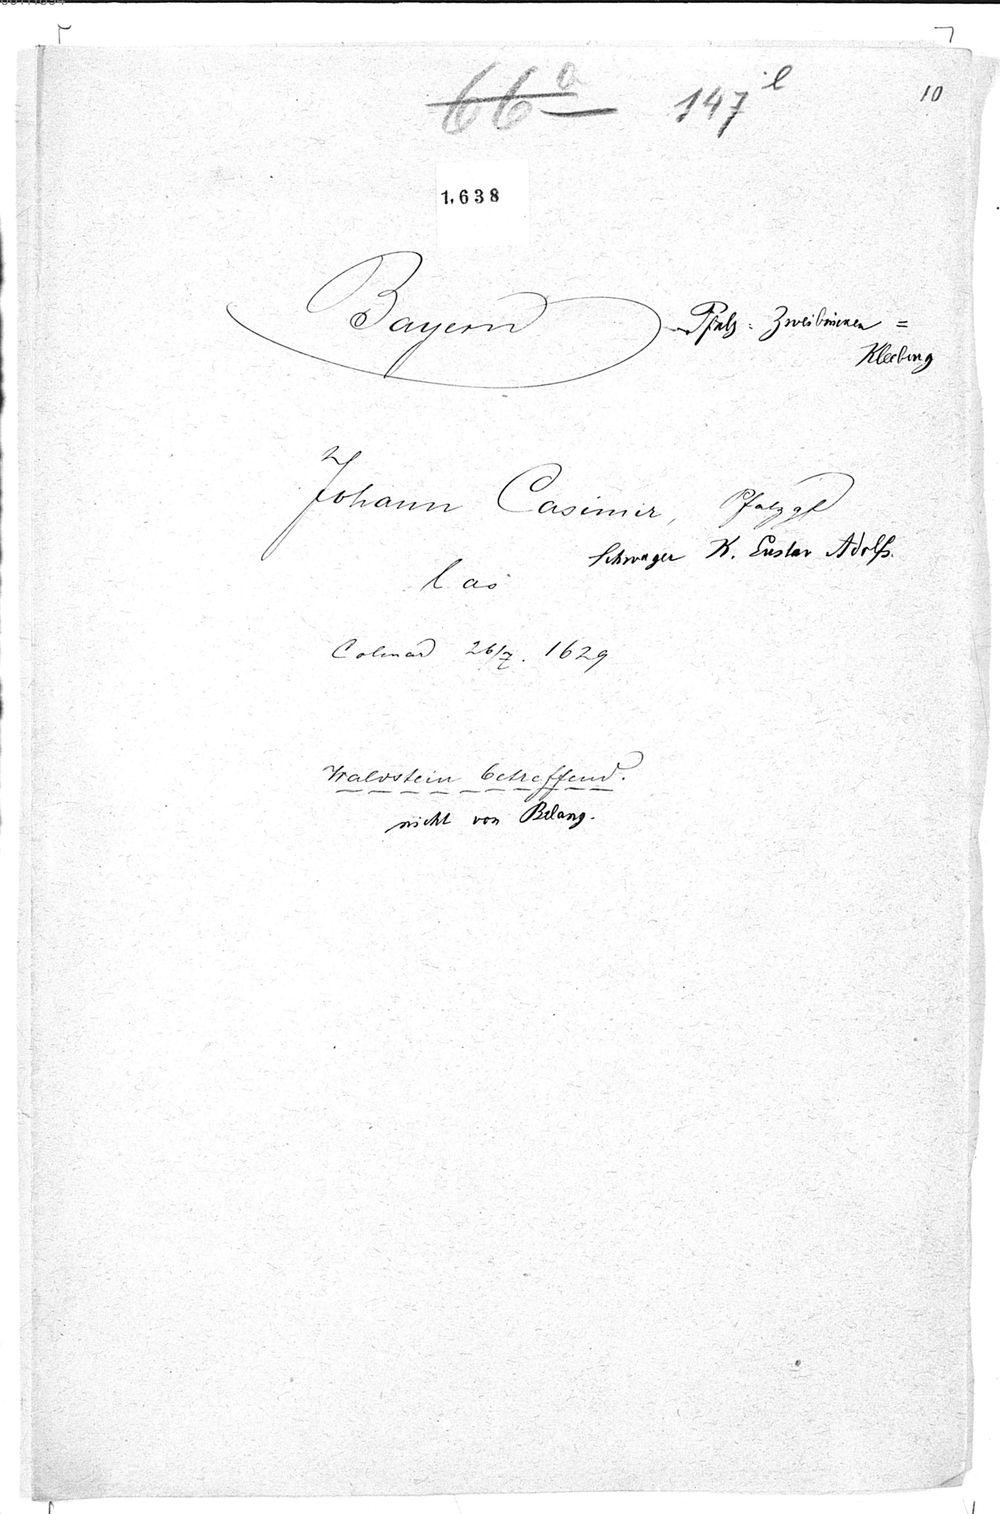 66a 147 l 10
1,638
Bayern Pfalz-Zweibrücken=
Kleeburg
Johann Casimir, Pfalzgf
Schwager K. Gustav Adolfs.
l as
Colmar 26/7. 1629
Waldstein betreffend.
nicht von Belang.